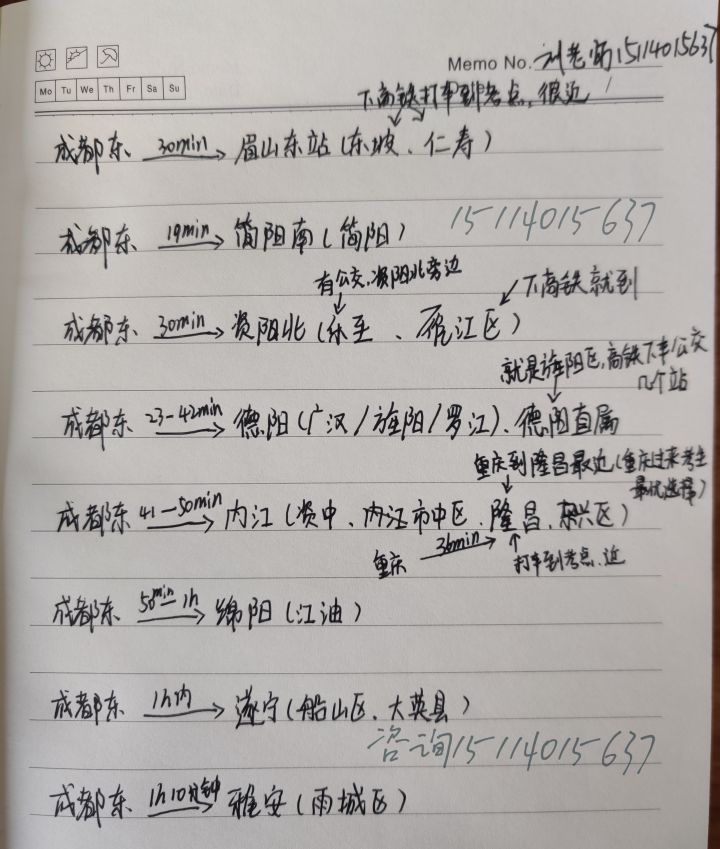 Memo No. 刘老师15114015637
Mo Tu We Th Fr Sa Su
下高铁打车到考点，很近
成都东 30min→ 眉山东站（东坡、仁寿）
成都东 19min→ 简阳南（简阳） 15114015637
有公交，资阳北旁边
下高铁就到
成都东 30min→ 资阳北（乐至、雁江区）
就是旌阳区，高铁下车公交
几个站
成都东 23-42min→ 德阳（广汉/旌阳/罗江）、德阳直属
重庆到隆昌最近（重庆过来考生
最优选择）
成都东 41-50min→ 内江（资中、内江市中区、隆昌、东兴区）
重庆 36min→
打车到考点、近
成都东 50min-1h→ 绵阳（江油）
成都东 1h内→ 遂宁（船山区、大英县）
咨询15114015637
成都东 1h10分钟→ 雅安（雨城区）